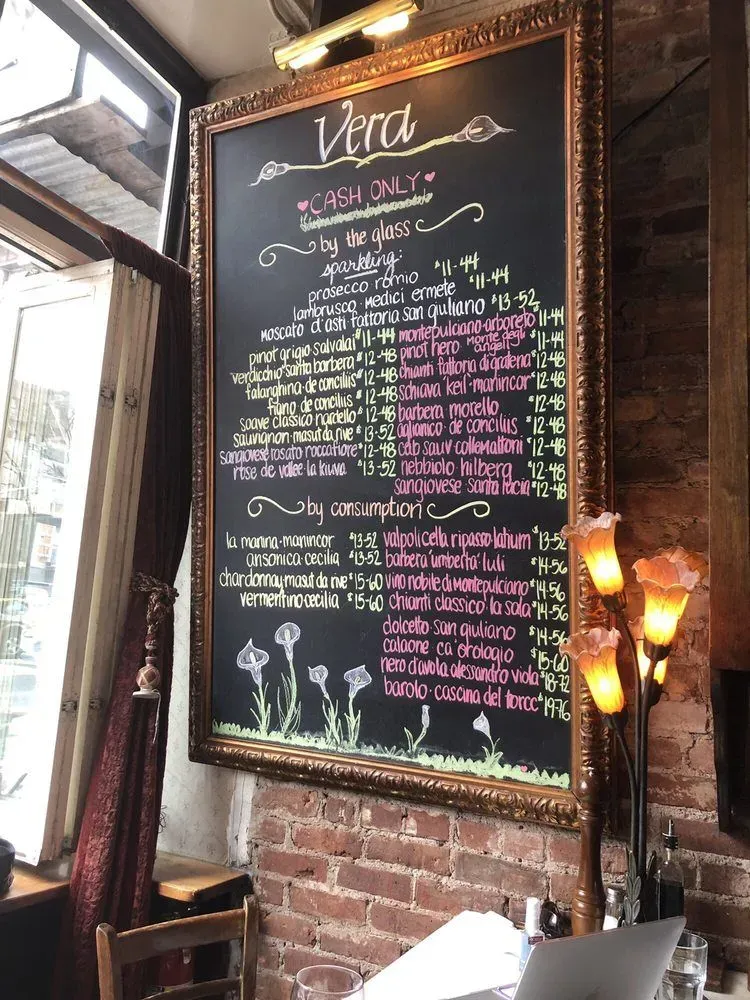 Vera
CASH ONLY
by the glass
sparkling:
prosecco romio $11-44
lambrusco · medici ermete $11-44
moscato d'asti · fattoria san giuliano $13-52
pinot grigio salvalai $11-44
verdicchio santa barbera $12-48
falanghina · de conciliis $12-48
fiano de conciliis $12-48
soave classico nardello $12-48
sauvignon · masut da rive $13-52
sangiovese rosato · roccafiore $12-48
rose de vallee · la kiuva $13-52
montepulciano · arboreto $11-44
pinot nero · monte degli angeli $11-44
chianti · fattoria di gratena $12-48
schiava 'keil' · manincor $12-48
barbera morello $12-48
aglianico · de conciliis $12-48
cab sauv · collemattoni $12-48
nebbiolo · hilberg $12-48
sangiovese · santa lucia $12-48
by consumption
la manina · manincor $13-52
ansonica · cecilia $13-52
chardonnay · masut da rive $15-60
vermentino · cecilia $15-60
valpolicella ripasso · latium $13-52
barbera 'umberta' · iuli $14-56
vino nobile di montepulciano $14-56
chianti classico · la sala $14-56
dolcetto · san giuliano $14-56
calaone · ca orologio $15-60
nero d'avola · alessandro viola $18-72
barolo · cascina del torcc $19-76